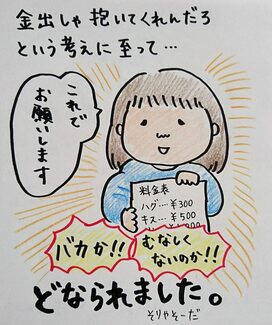 金出しゃ抱いてくれんだろ
という考えに至って…
これで
お願いします
料金表
ハグ…¥300
キス…¥500
バカか!!
むなしく
ないのか!!
どなられました。
そりゃそーだ